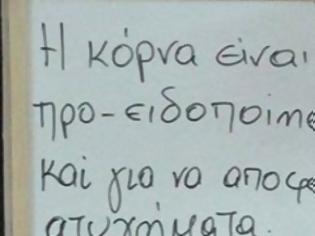 Η κόρνα είναι
προ-ειδοποίησ
και για να αποφε
ατυχήματα.